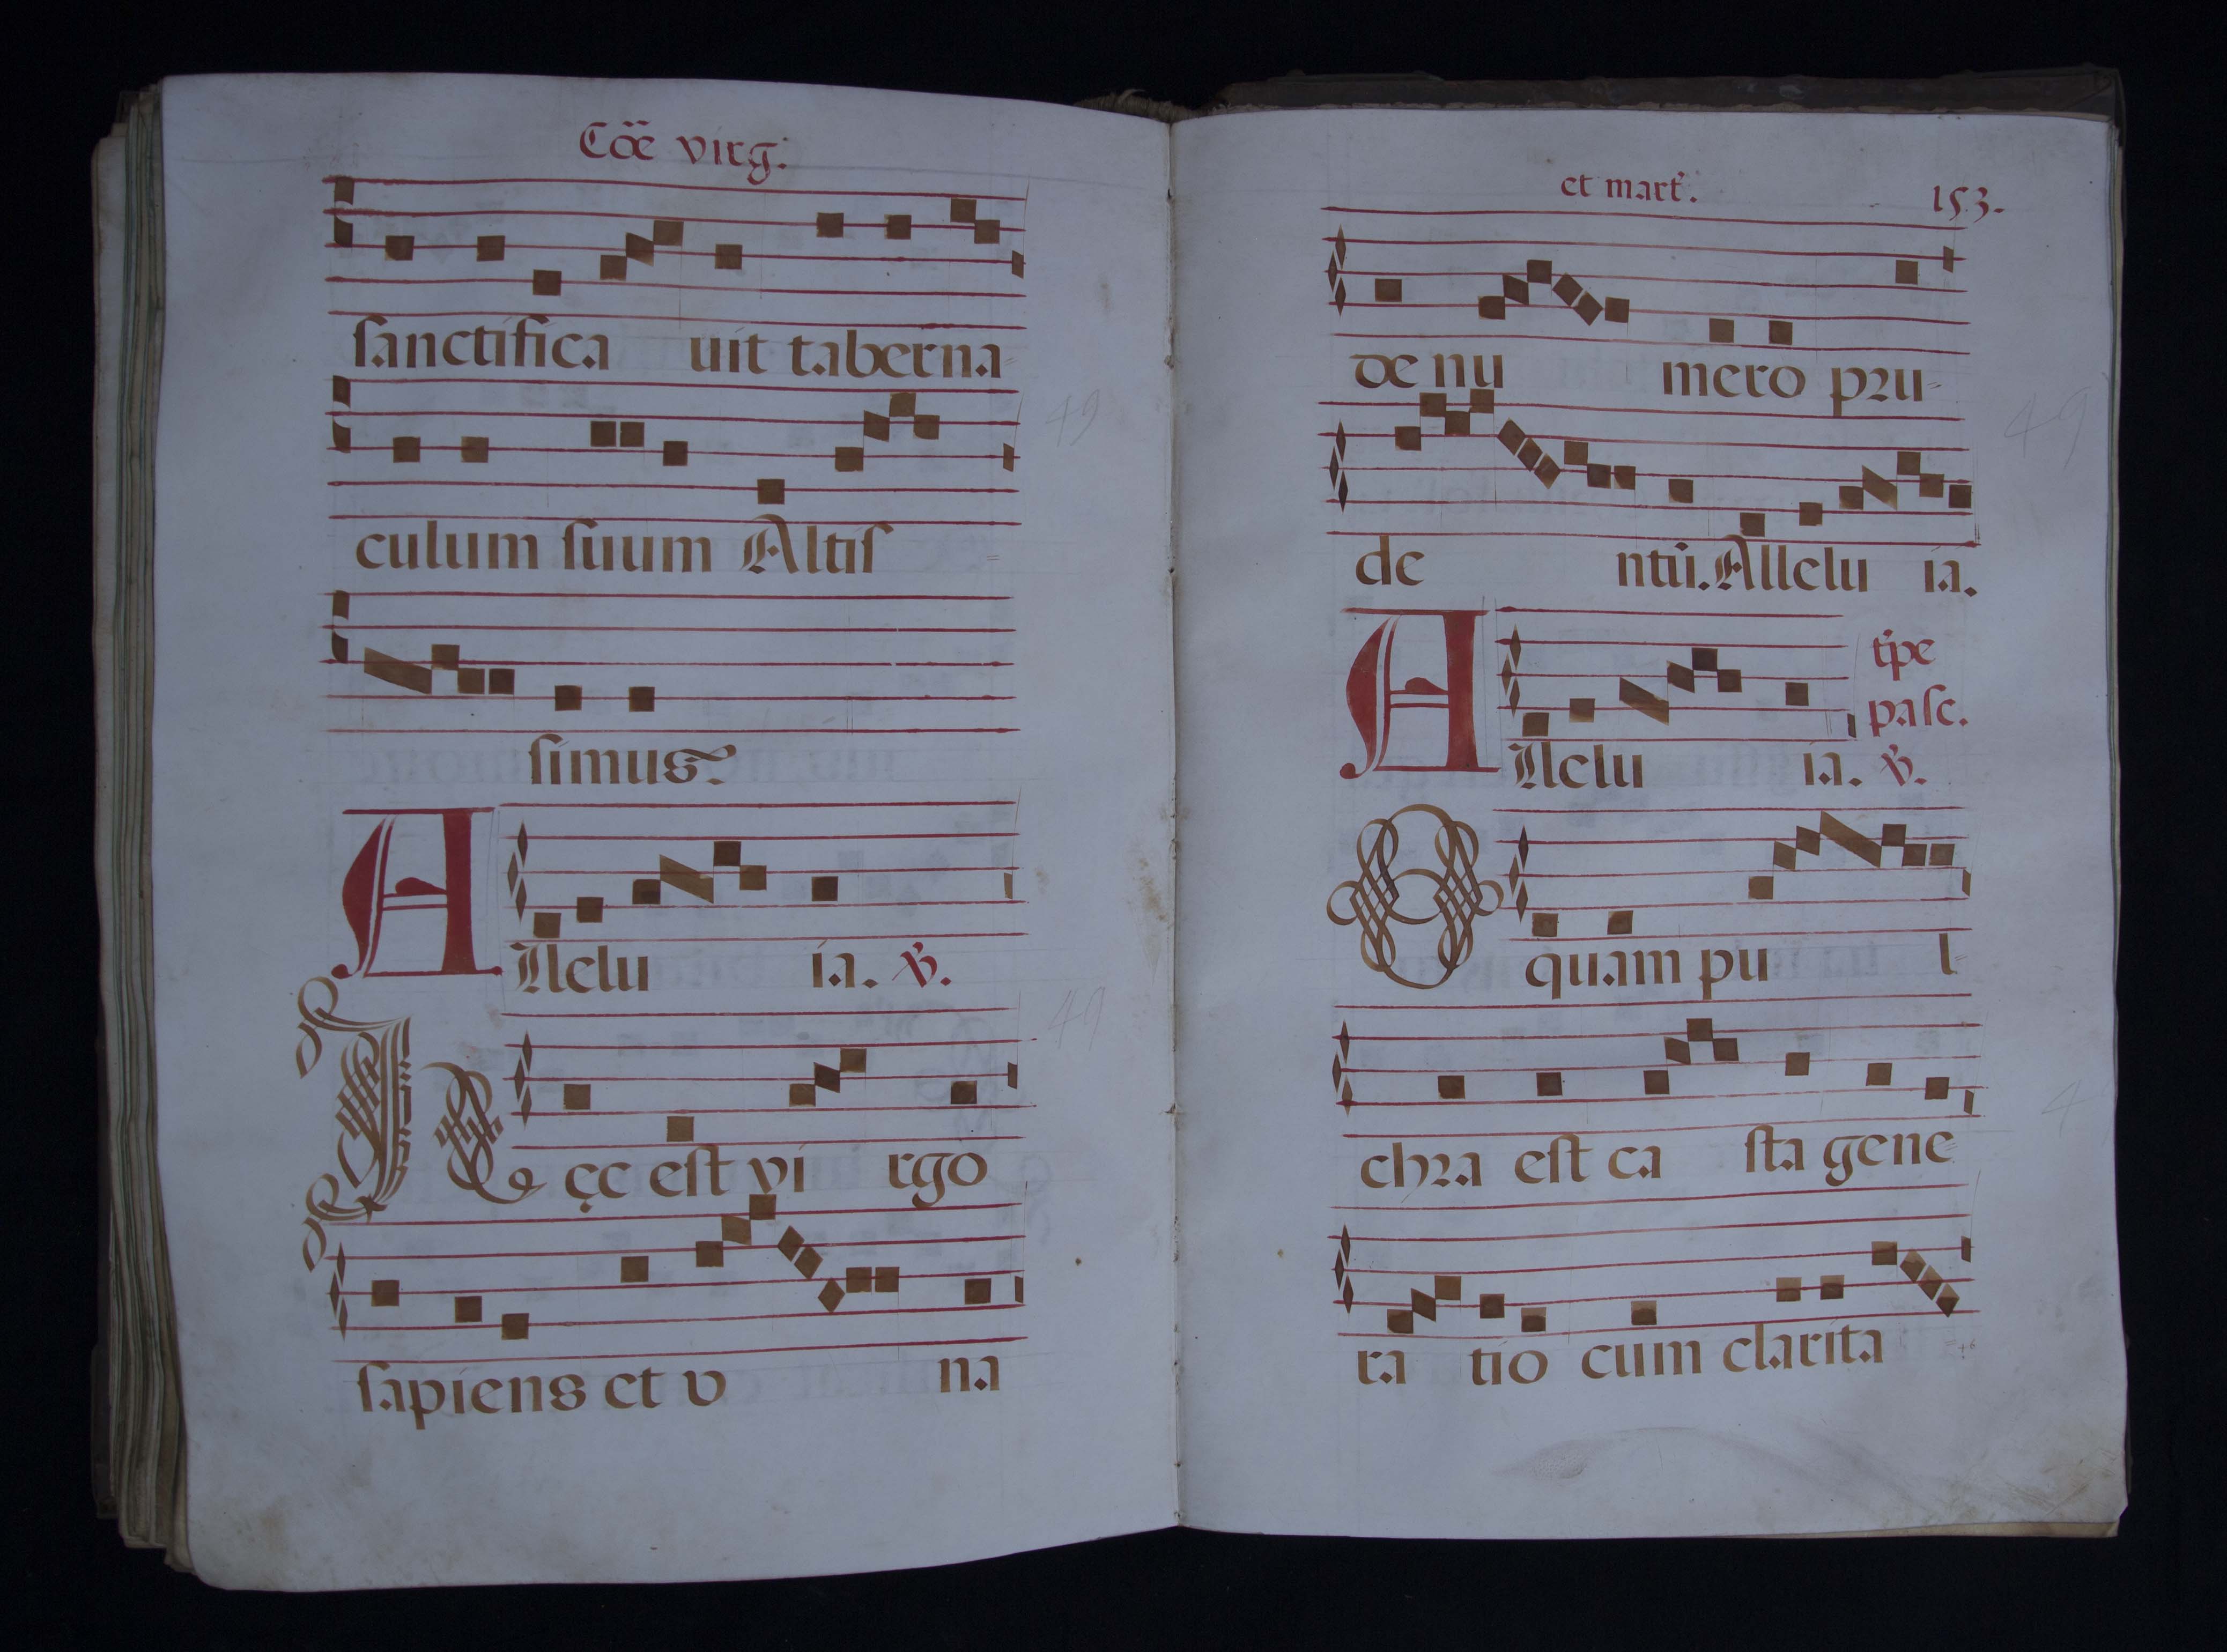 Cõe virg:
sanctifica uit taberna-
culum suum Altis-
simus.
Allelu ia. ℣.
Hęc est virgo
sapiens et v na
et mart. 153.
de nu mero pru-
de ntũ. Allelu ia.
Allelu ia. ℣. tp̃e pasc.
O quam pu l-
chra est ca sta gene-
ra tio cum clarita-